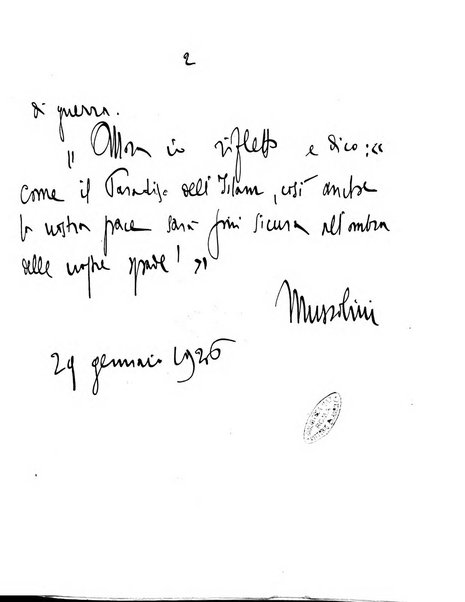 2
di guerra.
"Allora io rifletto e dico: «
come il Paradiso dell'Islam, così anche
la nostra pace sarà più sicura all'ombra
delle nostre spade! »
Mussolini
29 gennaio 1926